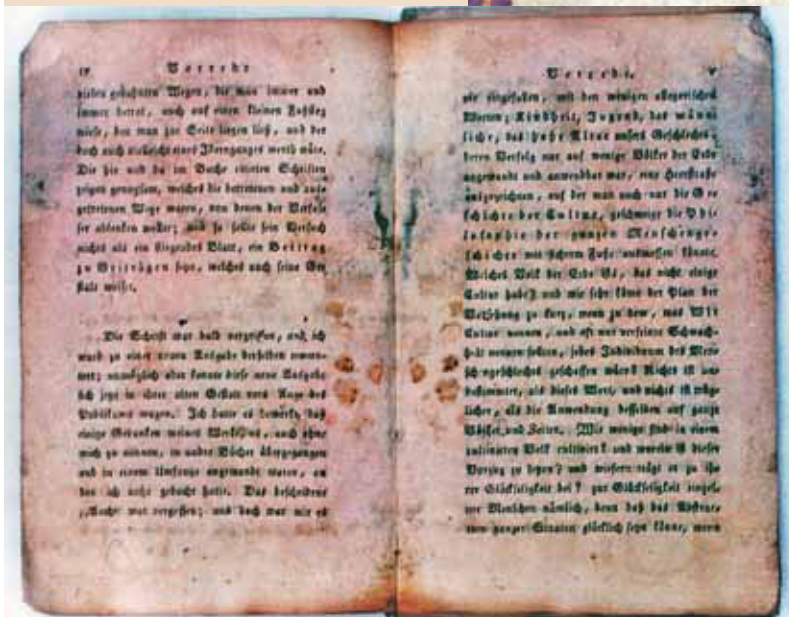 IV Vorrede
vielen gebahnten Wegen, die man immer und
immer betrat, auch auf einen kleinen Fußsteg
wiese, den man zur Seite liegen ließ, und der
doch auch vielleicht eines Ideenganges werth wäre.
Die hie und da im Buche citirten Schriften
zeigen genugsam, welches die betretenen und aus-
getretenen Wege waren, von denen der Verfas-
ser ablenken wollte; und so sollte sein Versuch
nichts als ein fliegendes Blatt, ein Beitrag
zu Beiträgen seyn, welches auch seine Ge-
stalt weiset.
Die Schrift war bald vergriffen, und ich
ward zu einer neuen Ausgabe derselben ermun-
tert; unmöglich aber konnte diese neue Ausgabe
sich jezt in ihrer alten Gestalt vors Auge des
Publikums wagen. Ich hatte es bemerkt, daß
einige Gedanken meines Werkchens, auch ohne
mich zu nennen, in andre Bücher übergegangen
und in einem Umfange angewandt waren, an
den ich nicht gedacht hatte. Das bescheidene
„Auch“ war vergessen; und doch war mir es
Vorrede. V
nie eingefallen, mit den wenigen allegorischen
Worten; Kindheit, Jugend, das männ-
liche, das hohe Alter unsers Geschlechts,
deren Verfolg nur auf wenige Völker der Erde
angewandt und anwendbar war, eine Heerstraße
auszuzeichnen, auf der man auch nur die Ge-
schichte der Cultur, geschweige die Phi-
losophie der ganzen Menschenge-
schichte mit sicherm Fuße ausmessen könnte.
Welches Volk der Erde ists, das nicht einige
Cultur habe? und wie sehr käme der Plan der
Vorsehung zu kurz, wenn zu dem, was Wir
Cultur nennen, und oft nur verfeinte Schwach-
heit nennen sollten, jedes Individuum des Men-
schengeschlechts geschaffen wäre? Nichts ist un-
bestimmter, als dieses Wort, und nichts ist trüg-
licher, als die Anwendung desselben auf ganze
Völker und Zeiten. Wie wenige sind in einem
cultivirten Volk cultivirt? und worein ist dieser
Vorzug zu setzen? und wiefern trägt er zu ih-
rer Glückseligkeit bei? zur Glückseligkeit einzel-
ner Menschen nämlich, denn daß das Abstrac-
tum ganzer Staaten glücklich seyn könne, wenn